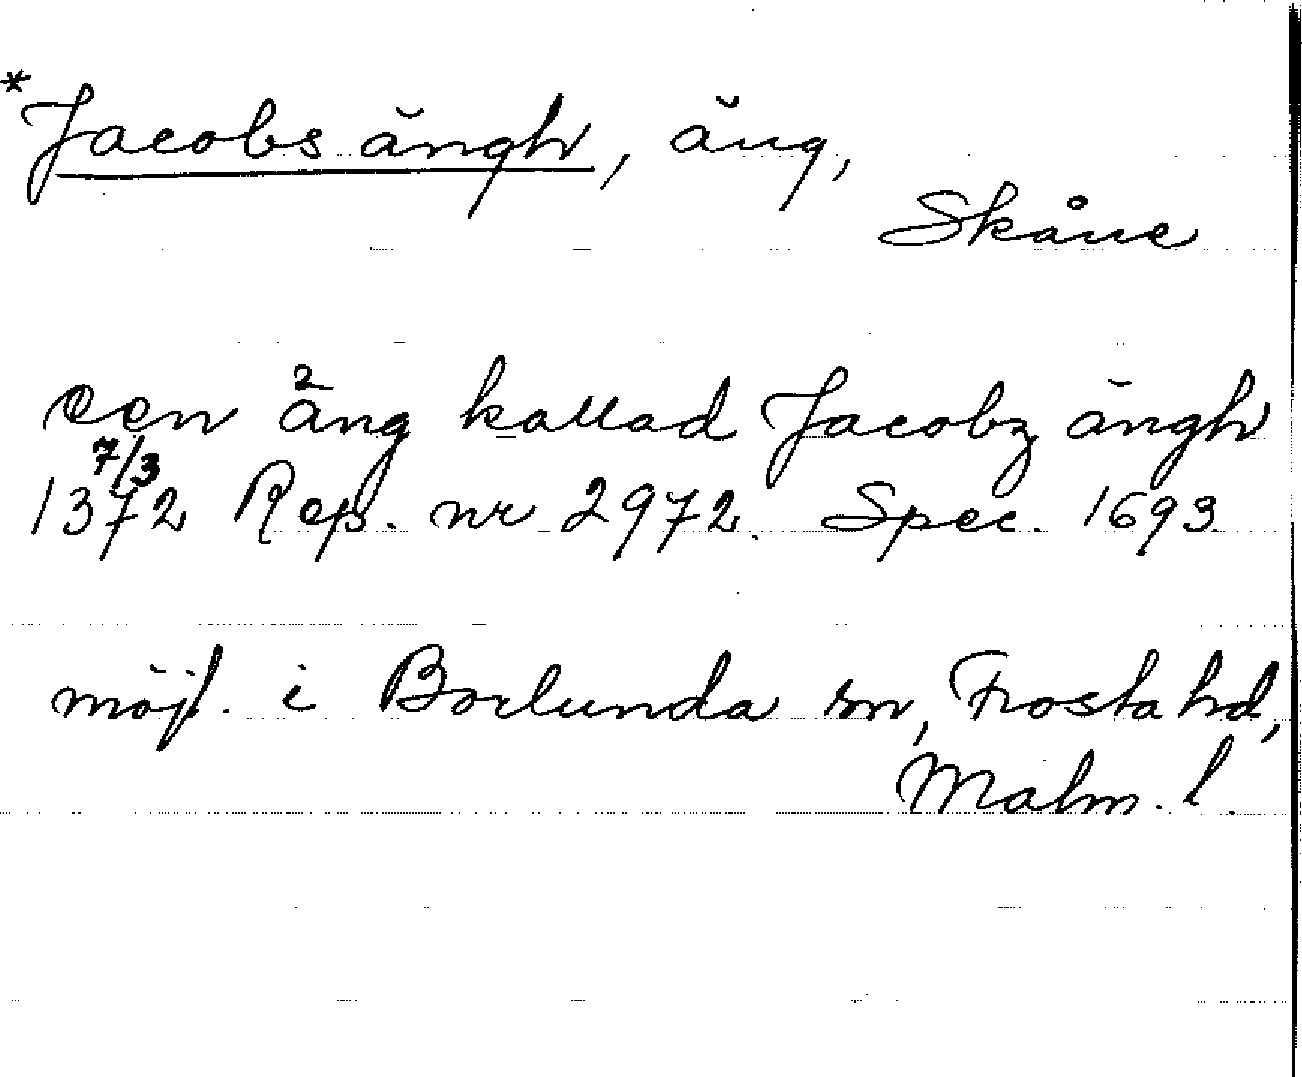 *Jacobs ängh, äng,
Skåne
een äng kallad Jacobz ängh
1372 7/3 Rep. nr 2972. Spec. 1693
möjl. i Borlunda sn, Frosta hd,
Malm. l.